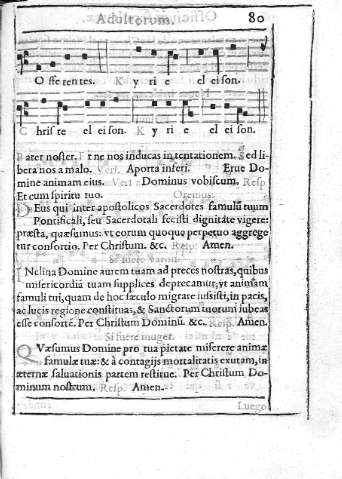 Adultorum. 80
Offerentes. Kyrie eleison.
Christe eleison. Kyrie eleison.
Pater noster. Et ne nos inducas in tentationem. Sed li-
bera nos a malo. Vers. A porta inferi. Erue Do-
mine animam eius. Vers. Dominus vobiscum. Resp
Et cum spiritu tuo. Oremus.
DEus qui inter apostolicos Sacerdotes famulū tuum
Pontificali, seu Sacerdotali fecisti dignitate vigere:
præsta, quæsumus: vt eorum quoque perpetuo aggrege
tur consortio. Per Christum. &c. Resp. Amen.
Si fuere varon.
INclina Domine aurem tuam ad preces nostras, quibus
misericordiā tuam supplices deprecamur, vt animam
famuli tui, quam de hoc sæculo migrare iussisti, in pacis,
ac lucis regione constituas, & Sanctorum tuorum iubeas
esse consorte. Per Christum Dominū. &c. Resp. Amen.
Si fuere muger.
QVæsumus Domine pro tua pietate miserere animæ
famulæ tuæ: & à contagijs mortalitatis exutam, in
æternæ saluationis partem restitue. Per Christum Do-
minum nostrum. Resp. Amen.
Luego